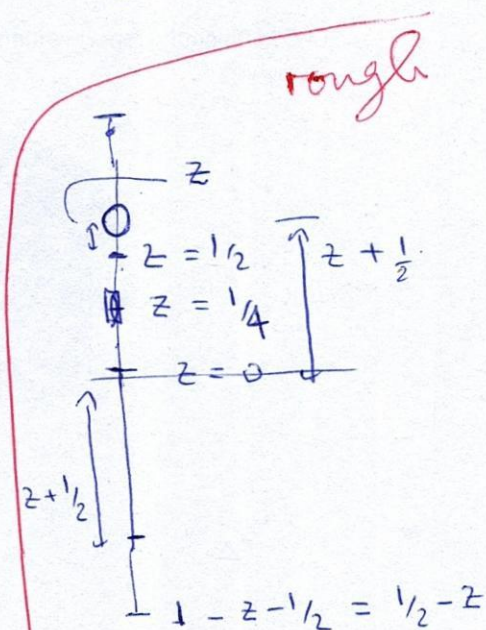 rough
z
z = 1/2
z + 1/2
z = 1/4
z = 0
z + 1/2
1 - z - 1/2 = 1/2 - z